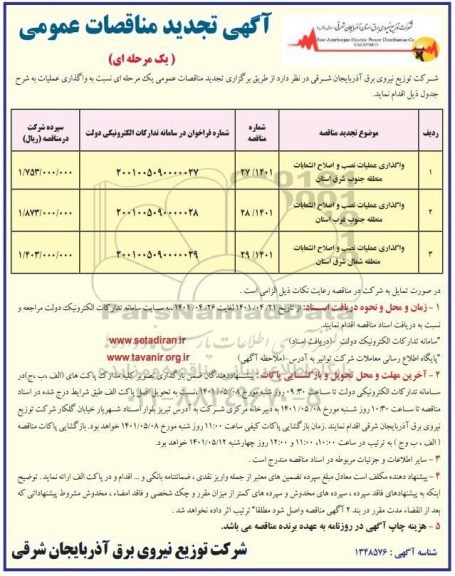 شرکت توزیع نیروی برق استان آذربایجان شرقی (سهامی خاص)
East Azarbayjan Electric Power Distribution Co.
آگهی تجدید مناقصات عمومی
( یک مرحله ای)
شرکت توزیع نیروی برق آذربایجان شرقی در نظر دارد از طریق برگزاری تجدید مناقصات عمومی یک مرحله ای نسبت به واگذاری عملیات به شرح
جدول ذیل اقدام نماید.
ردیف	موضوع تجدید مناقصه	شماره مناقصه	شماره فراخوان در سامانه تدارکات الکترونیکی دولت	سپرده شرکت درمناقصه (ریال)
۱	واگذاری عملیات نصب و اصلاح انشعابات منطقه جنوب شرق استان	۱۴۰۱/ ۲۷	۲۰۰۱۰۰۵۰۹۰۰۰۰۰۲۷	۱/۷۵۳/۰۰۰/۰۰۰
۲	واگذاری عملیات نصب و اصلاح انشعابات منطقه جنوب غرب استان	۱۴۰۱/ ۲۸	۲۰۰۱۰۰۵۰۹۰۰۰۰۰۲۸	۱/۸۷۳/۰۰۰/۰۰۰
۳	واگذاری عملیات نصب و اصلاح انشعابات منطقه شمال شرق استان	۱۴۰۱/ ۲۹	۲۰۰۱۰۰۵۰۹۰۰۰۰۰۲۹	۱/۴۰۳/۰۰۰/۰۰۰
در صورت تمایل به شرکت در مناقصه رعایت نکات ذیل الزامی است .
۱ - زمان و محل و نحوه دریافت اسناد: از تاریخ ۱۴۰۱/۰۴/۲۱ لغایت ۱۴۰۱/۰۴/۲۶ به سایت سامانه تدارکات الکترونیک دولت مراجعه و
نسبت به دریافت اسناد مناقصه اقدام نمایند.
"سامانه تدارکات الکترونیک دولت (دریافت اسناد) www.setadiran.ir
"پایگاه اطلاع رسانی معاملات شرکت توانیر به آدرس (ملاحظه آگهی) www.tavanir.org.ir
۲ - آخرین مهلت و محل تحویل و بازگشایی پاکات : پیشنهاددهندگان ضمن بارگذاری تصویر کلیه مدارک پاکت های (الف ،ب ،ج)در
سامانه تدارکات الکترونیکی دولت تا ساعت ۰۹:۳۰ روز شنبه مورخ ۱۴۰۱/۰۵/۰۸، نسبت به تحویل اصل پاکت الف طبق شرایط درج شده در اسناد
مناقصه تا ساعت ۱۰:۳۰ روز شنبه مورخ ۱۴۰۱/۰۵/۰۸ به دبیرخانه مرکزی شرکت به آدرس تبریز بلوار استاد شهریار خیابان گلکار شرکت توزیع
نیروی برق آذربایجان شرقی اقدام نمایند .زمان بازگشایی پاکات کیفی ساعت ۱۱:۰۰ روز شنبه مورخ ۱۴۰۱/۰۵/۰۸ خواهد بود. بازگشایی پاکات مناقصه
( الف ، ب وج ) به ترتیب در ساعت ۱۰:۰۰، ۱۱:۰۰ و ۱۲:۰۰ روز چهارشنبه ۱۴۰۱/۰۵/۱۲ خواهد بود.
۳ - سایر اطلاعات و جزئیات مربوطه در اسناد مناقصه مندرج است .
۴ - پیشنهاد دهنده مکلف است معادل مبلغ سپرده تضمین های معتبر از جمله واریز نقدی ، ضمانتنامه بانکی و ... اقدام و در پاکت الف ارائه نماید . توضیح
اینکه به پیشنهادهای فاقد سپرده ، سپرده های مخدوش و سپرده های کمتر از میزان مقرر و چک شخصی و فاقد امضاء ، مخدوش مشروط پیشنهاداتی که
بعد از انقضاء مدت مقرر در بند ۲ آگهی مناقصه واصل شود مطلقا" ترتیب اثر داده نخواهد شد .
۵ - هزینه چاپ آگهی در روزنامه به عهده برنده مناقصه می باشد.
شناسه آگهی : ۱۳۴۸۵۷۶
شرکت توزیع نیروی برق آذربایجان شرقی